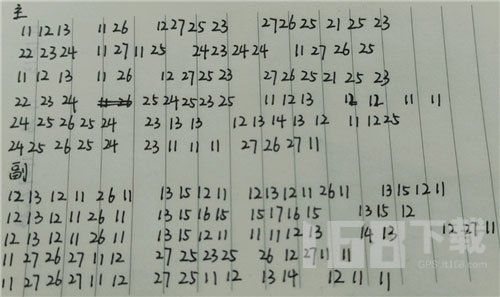 主
11 12 13 11 26 12 27 25 23 27 26 25 21 25 23
22 23 24 11 27 11 25 24 23 24 24 11 27 26 25
11 12 13 11 26 12 27 25 23 27 26 25 21 25 23
22 23 24 11 26 25 24 25 23 25 11 12 13 12 12 11 11
24 25 26 25 24 23 13 13 12 13 14 13 12 11 12 25
24 25 26 25 24 23 11 11 11 27 26 27 11
副
12 13 12 11 26 11 13 15 12 11 12 13 12 11 26 11 13 15 12 11
12 13 12 11 26 11 13 15 16 15 15 17 16 15 13 15 12
12 13 12 11 26 11 13 15 12 11 11 11 12 13 14 13 12 27 11
11 27 26 27 11 12 27 25 23 25 26 12 27 11 11
11 27 26 27 11 12 27 25 11 12 13 14 12 11 11
1168下载
GPS.it168.com